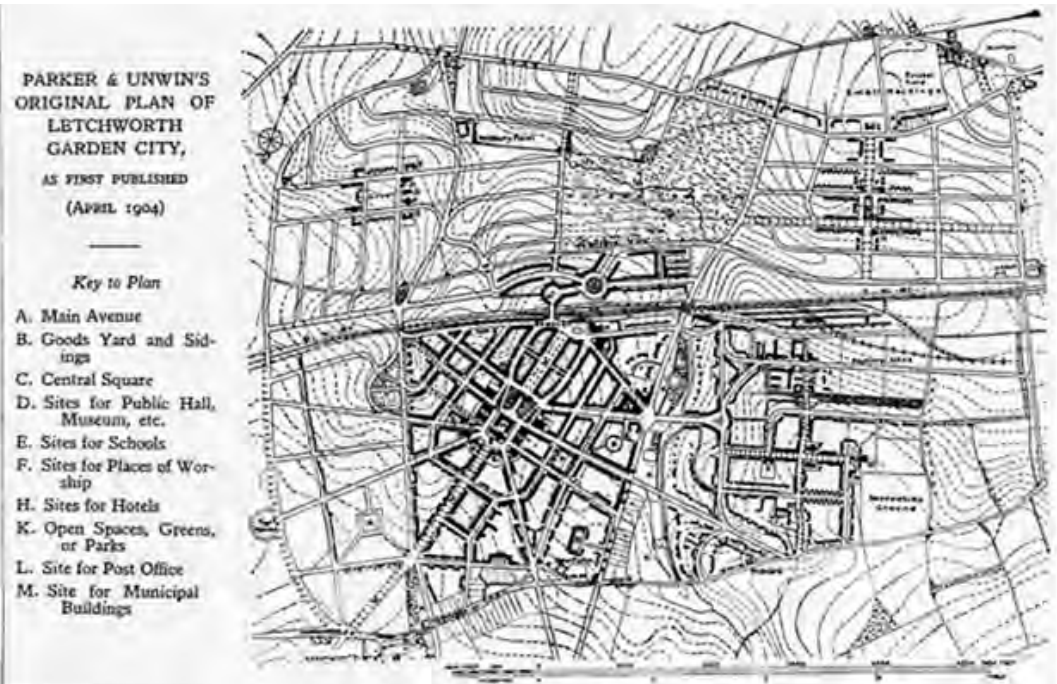 PARKER & UNWIN'S
ORIGINAL PLAN OF
LETCHWORTH
GARDEN CITY,
AS FIRST PUBLISHED
(APRIL 1904)
Key to Plan
A. Main Avenue
B. Goods Yard and Sid-
ings
C. Central Square
D. Sites for Public Hall,
Museum, etc.
E. Sites for Schools
F. Sites for Places of Wor-
ship
H. Sites for Hotels
K. Open Spaces, Greens,
or Parks
L. Site for Post Office
M. Site for Municipal
Buildings
Small Holdings
Ground